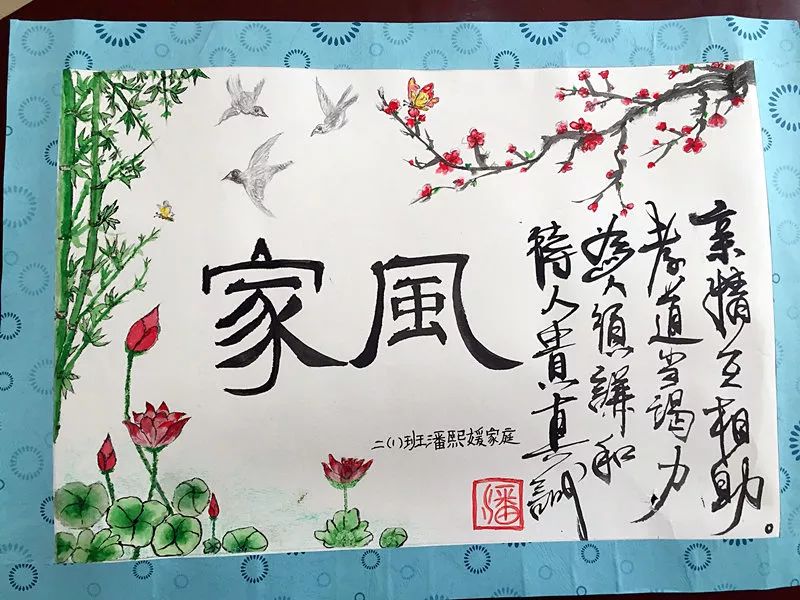 家風
亲情互相助
孝道当竭力
為人須謙和
待人貴真誠
二(1)班潘熙媛家庭
潘